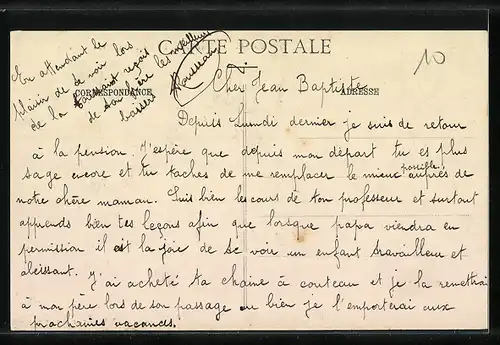 CARTE POSTALE
CORRESPONDANCE
ADRESSE
10
Cher Jean Baptiste
Depuis Lundi dernier je suis de retour
à la pension. J'espère que depuis mon départ tu es plus
sage encore et tu taches de me remplacer le mieux possible auprès de
notre chère maman. Suis bien les cours de ton professeur et surtout
apprends bien tes leçons afin que lorsque papa viendra en
permission il ait la joie de te voir un enfant travailleur et
obeissant. J'ai acheté ta chaine à couteau et je la remettrai
à mon père lors de son passage ou bien je l'emporterai aux
prochaines vacances.
En attendant le
plaisir de te voir lors
de la reçois
de ton frère les meilleurs
baisers